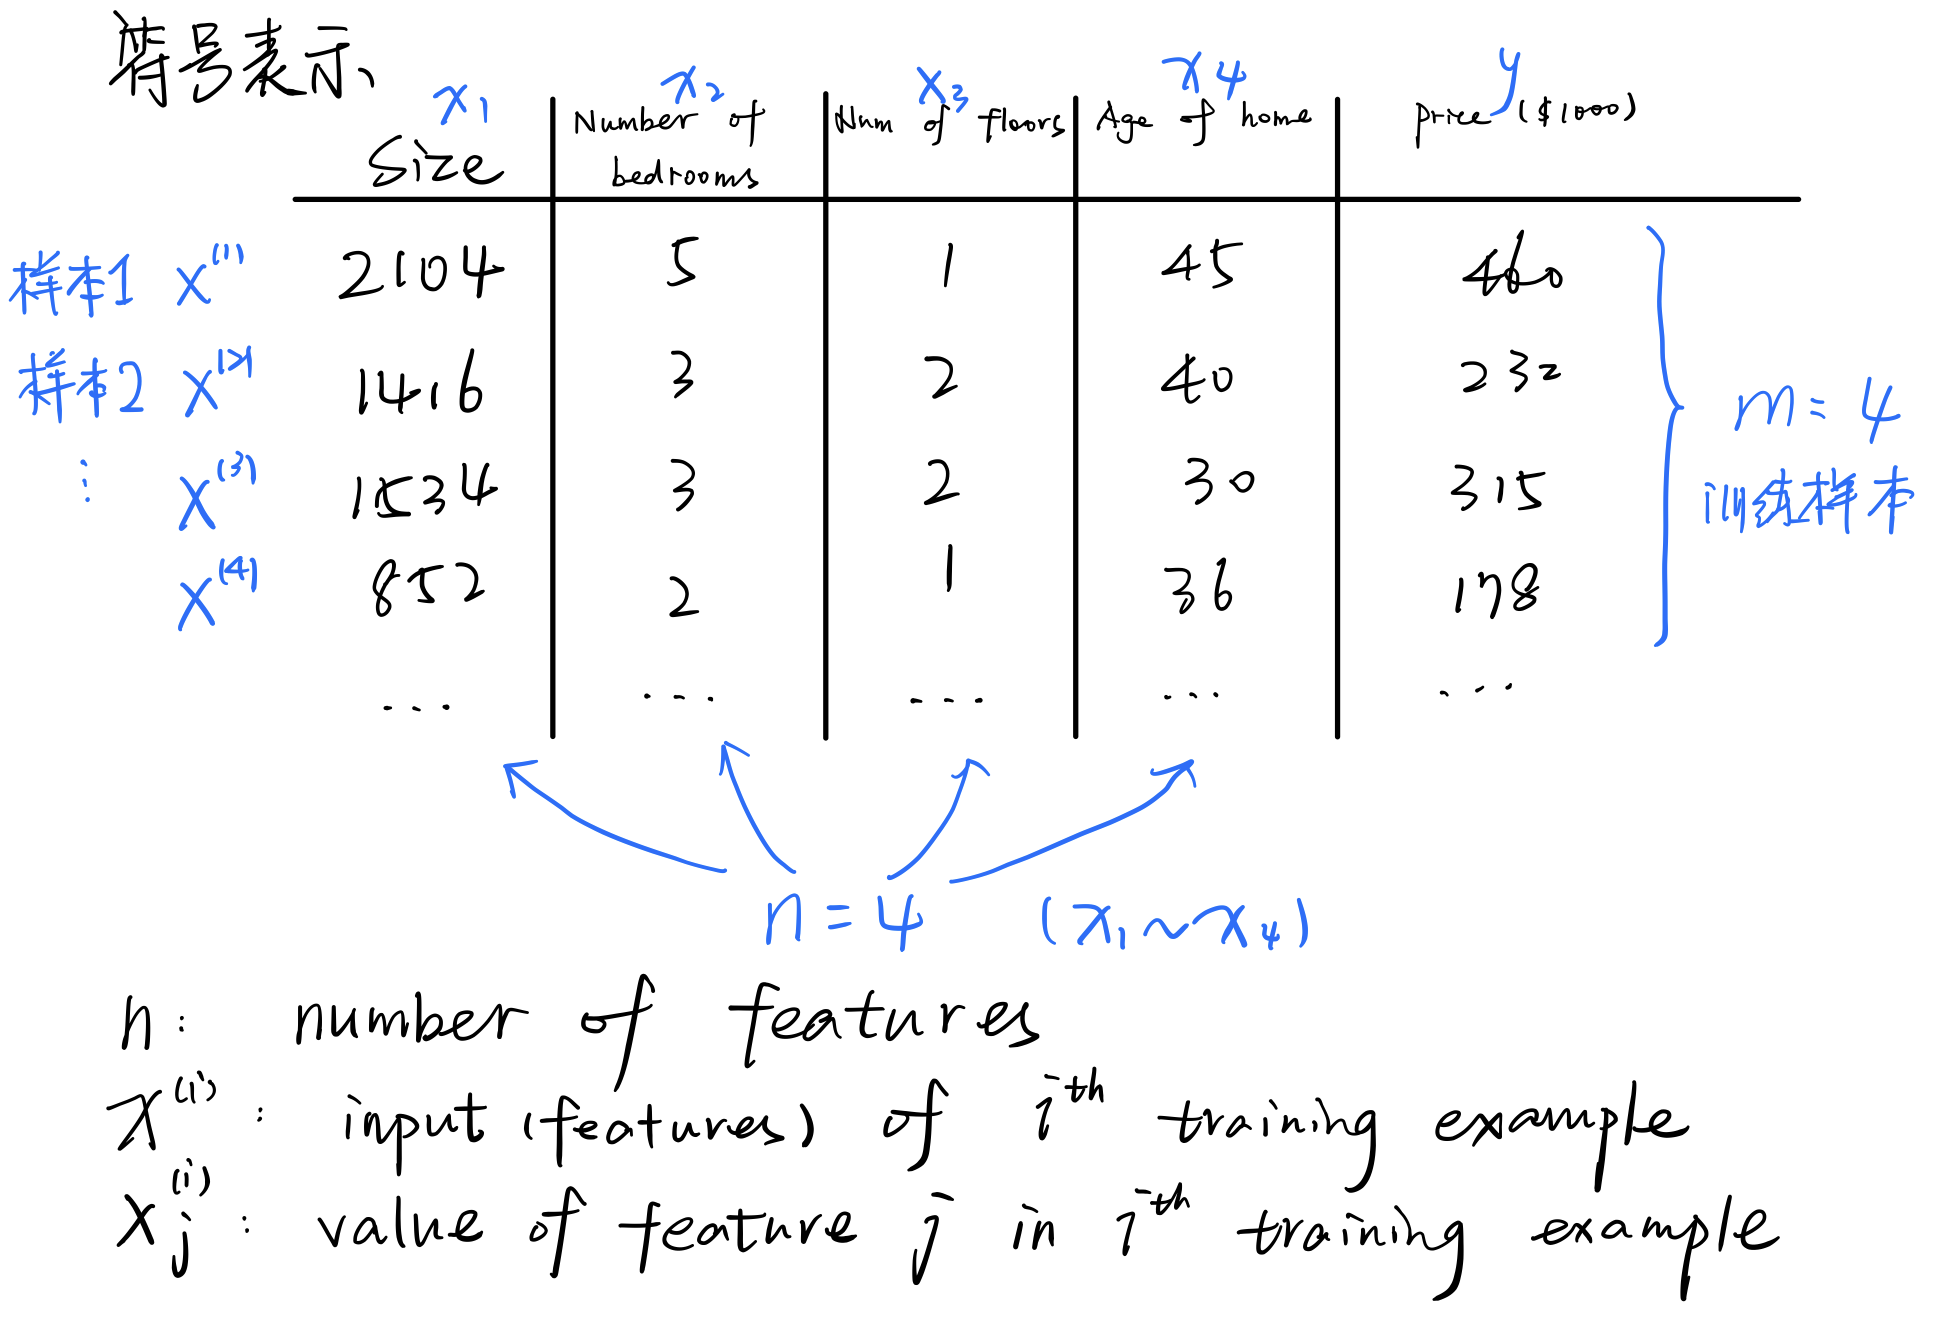 符号表示
x₁ x₂ x₃ x₄ y
Size Number of bedrooms Num of floors Age of home price ($1000)
样本1 x⁽¹⁾ 2104 5 1 45 460
样本2 x⁽²⁾ 1416 3 2 40 232
⋮ x⁽³⁾ 1534 3 2 30 315
x⁽⁴⁾ 852 2 1 36 178
... ... ... ... ...
m = 4
训练样本
n = 4 (x₁ ~ x₄)
n: number of features
x⁽ⁱ⁾: input (features) of iᵗʰ training example
xⱼ⁽ⁱ⁾: value of feature j in iᵗʰ training example